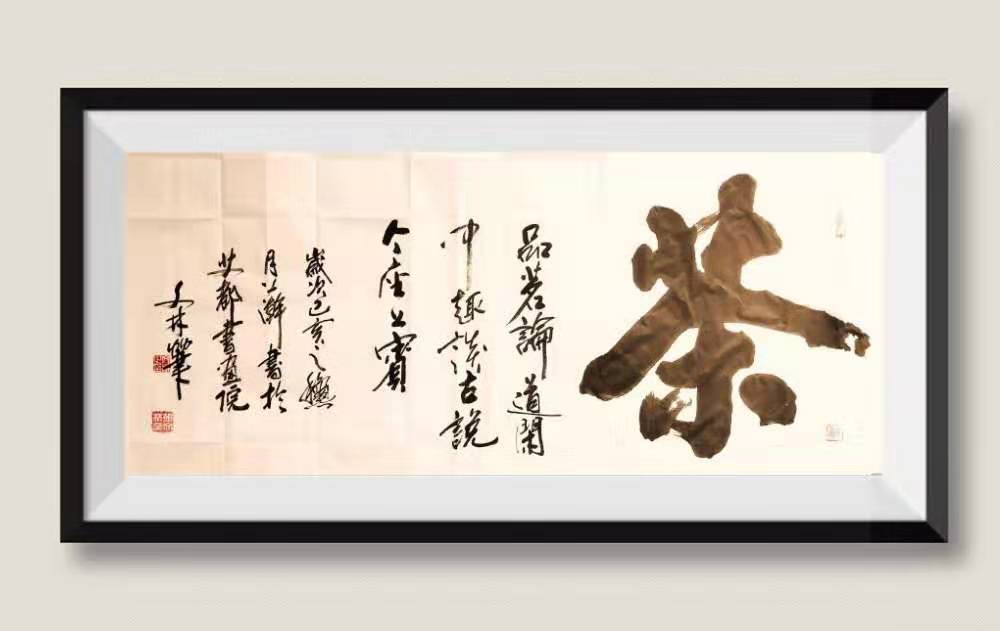 茶
品茗論道閑
中趣談古說
今座上賓
歲次己亥之穐
月瀚書於
艾都書画院
林筆